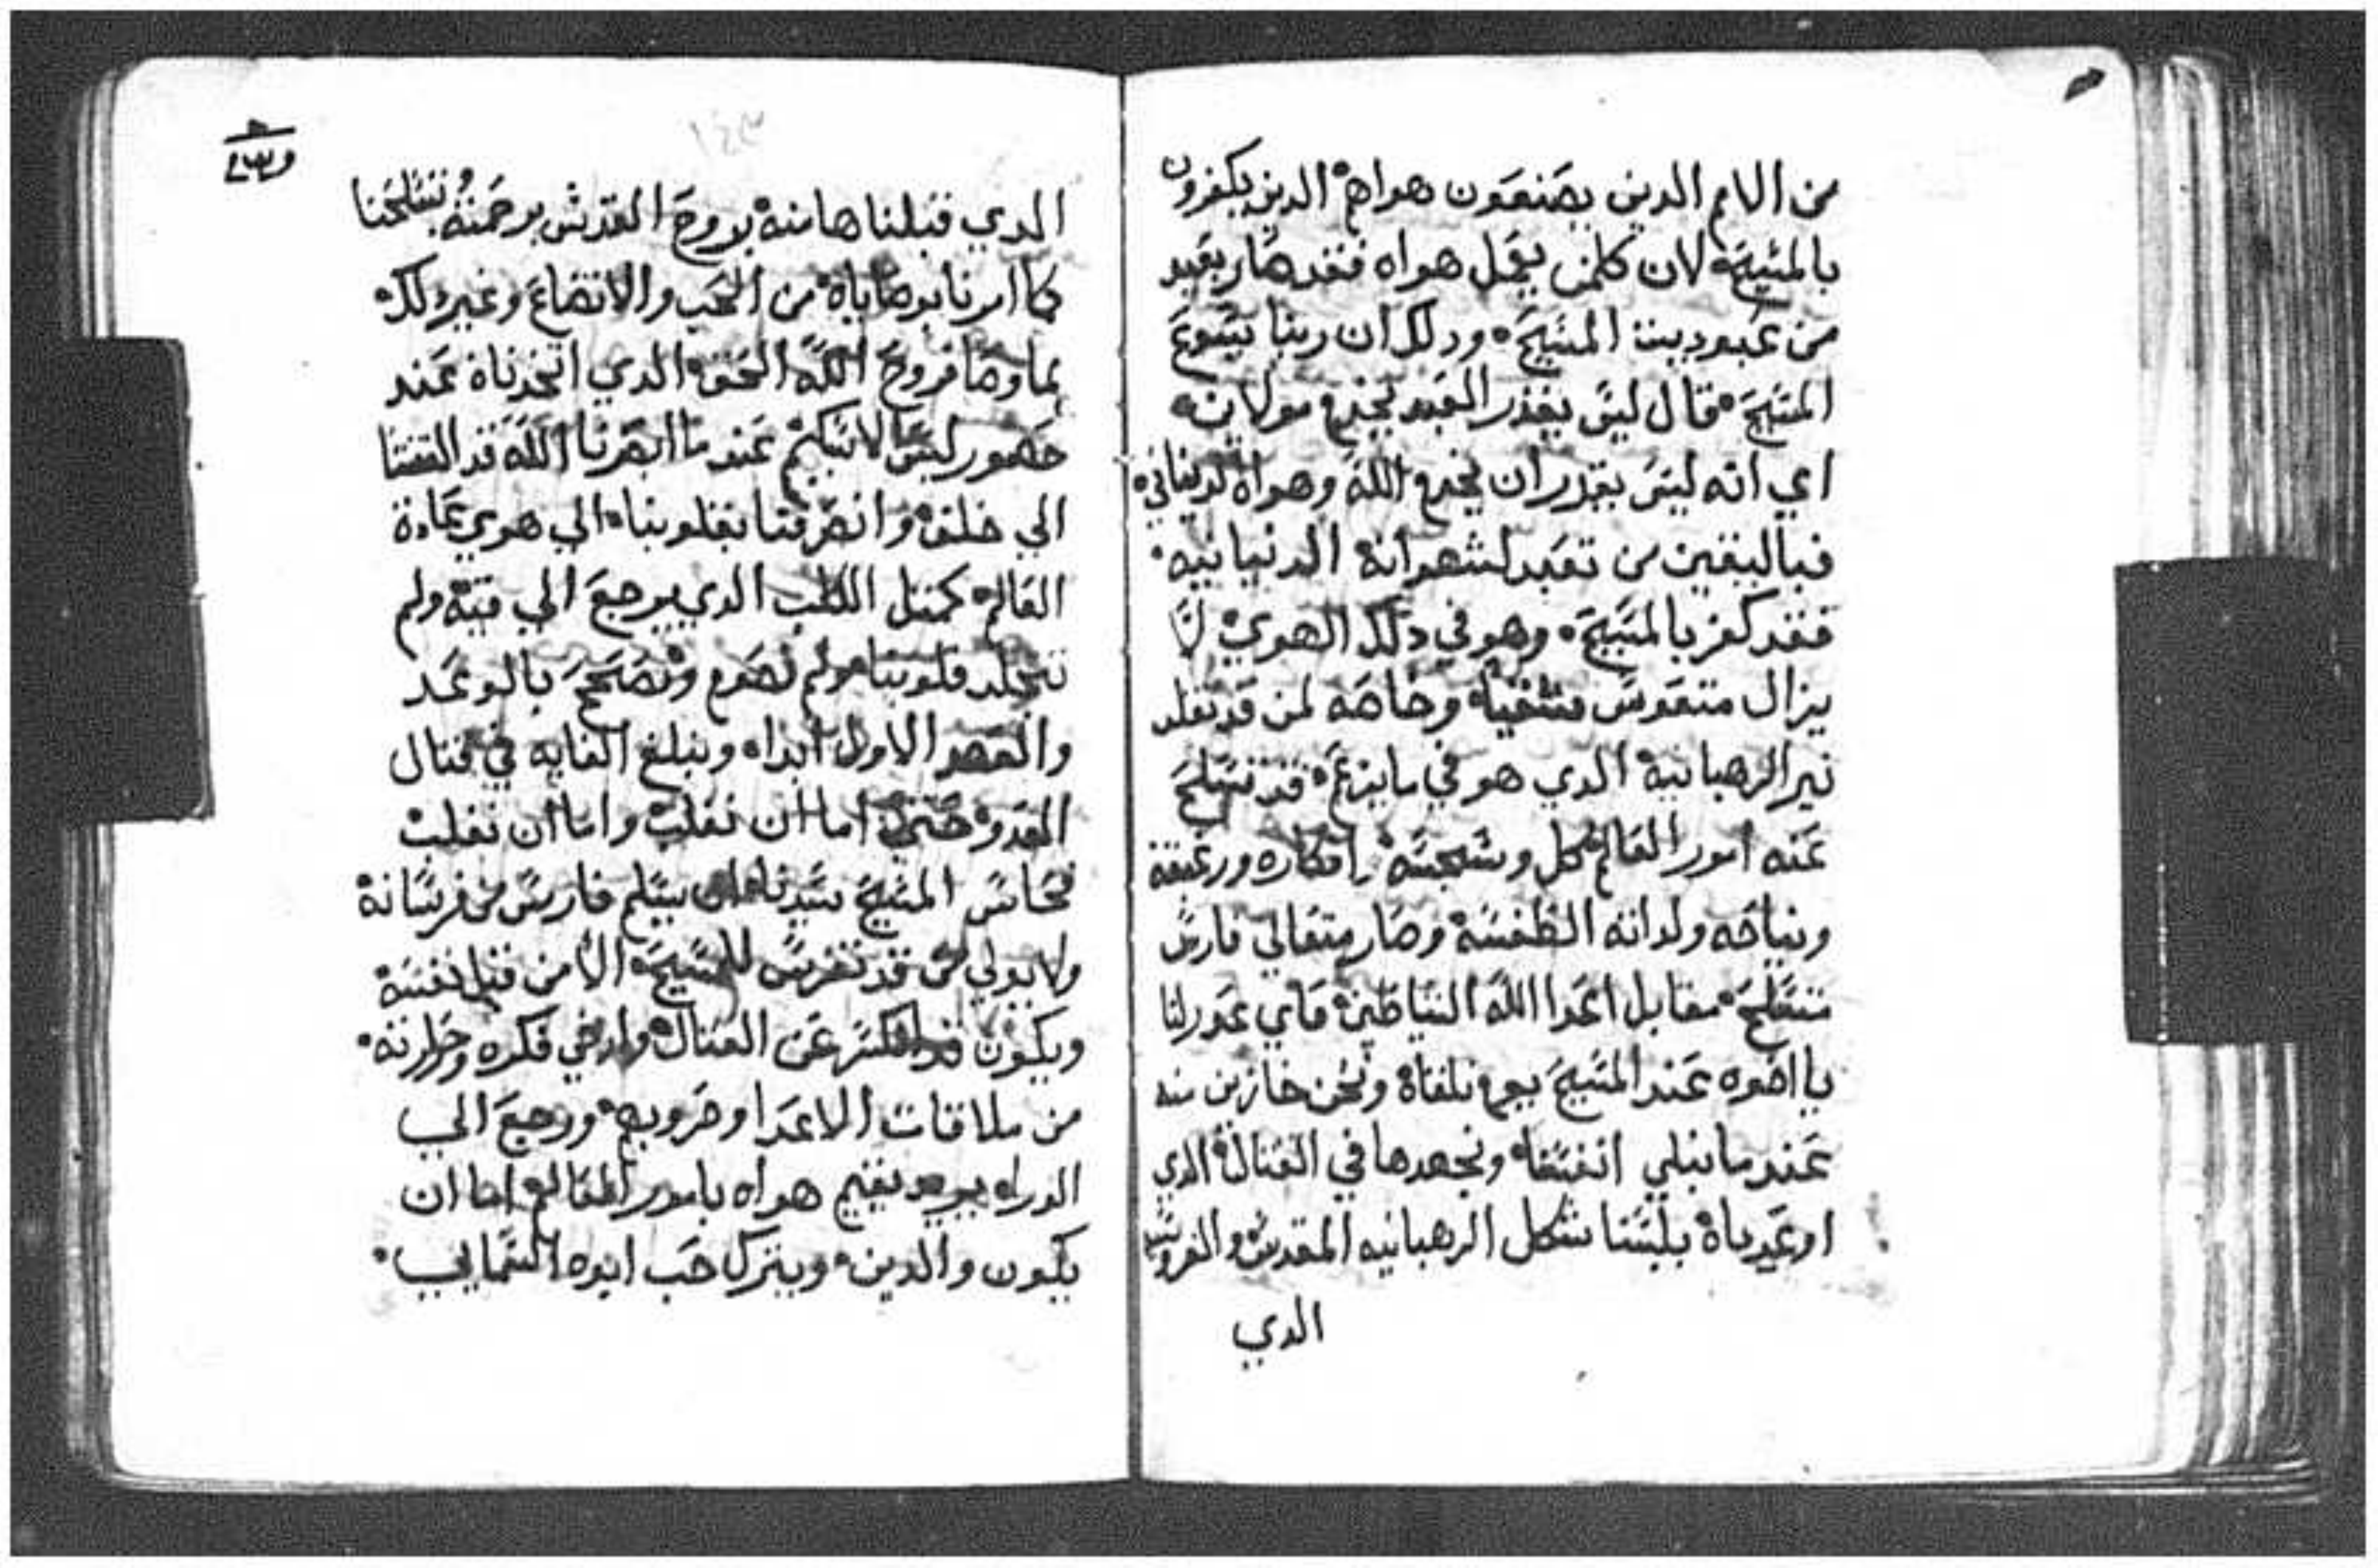 من الامم الدين يصنعون هواهم الدين يكفرون
بالمسيح لان كلمن يعمل هواه فقد صار بعيد
من عبودية المسيح ودلك ان ربنا يسوع
المسيح قال ليس يقدر العبد يخدم مولايين
اي انه ليس يقدر ان يخدم الله وهواه
فباليقين من تعبد لشهواته الدنيانيه
فقد كفر بالمسيح وهو في دلك الهوي لا
يزال وخاصه لمن قد تقلد
نير الرهبانيه الدي هو في ما يزعم قد تسلح
عنه امور العالم كل وشجيته افكاره
ونياحه ولداته الطفسه وصار متعالي فارس
متسلح مقابل اعدا الله الشياطين فاي عدر لنا
يا اخوه عند المسيح يوم نلقاه ونحن منه
عند ما نبلي انفسنا ونجهدها في القتال الدي
اوعدناه بلبسنا شكل الرهبانيه المقدس
الدي
١٤٣
الدي قبلناها منه بروح القدس برحمته
كما امرنا بوصاياه من الحب والاتضاع وغير دلك
بماوضا فروح الله الحق الدي اتخدناه عند
حضور عند ما ابصرنا الله قد التفتنا
الي خلف وانصرفنا بقلوبنا الي هوي عادة
العالم كمثل الكلب الدي يرجع الي قيه ولم
تتجلد قلوبنا ولم بالوعد
والعهد الاول ابدا ونبلغ الغايه في قتال
العدو حتي اما ان نغلب واما ان نغلب
فحاس المسيح سيدنا ان يسلم فارس من فرسانه
ولا من قد تفرس للمسيح الا من قبل نفسه
ويكون قد عن القتال وارخي فكره وحرارته
من ملاقات الاعدا وحروبهم ورجع الي
الورا هواه بامور العالم اما ان
يكون والدين ويترك حب ابوه السمايي